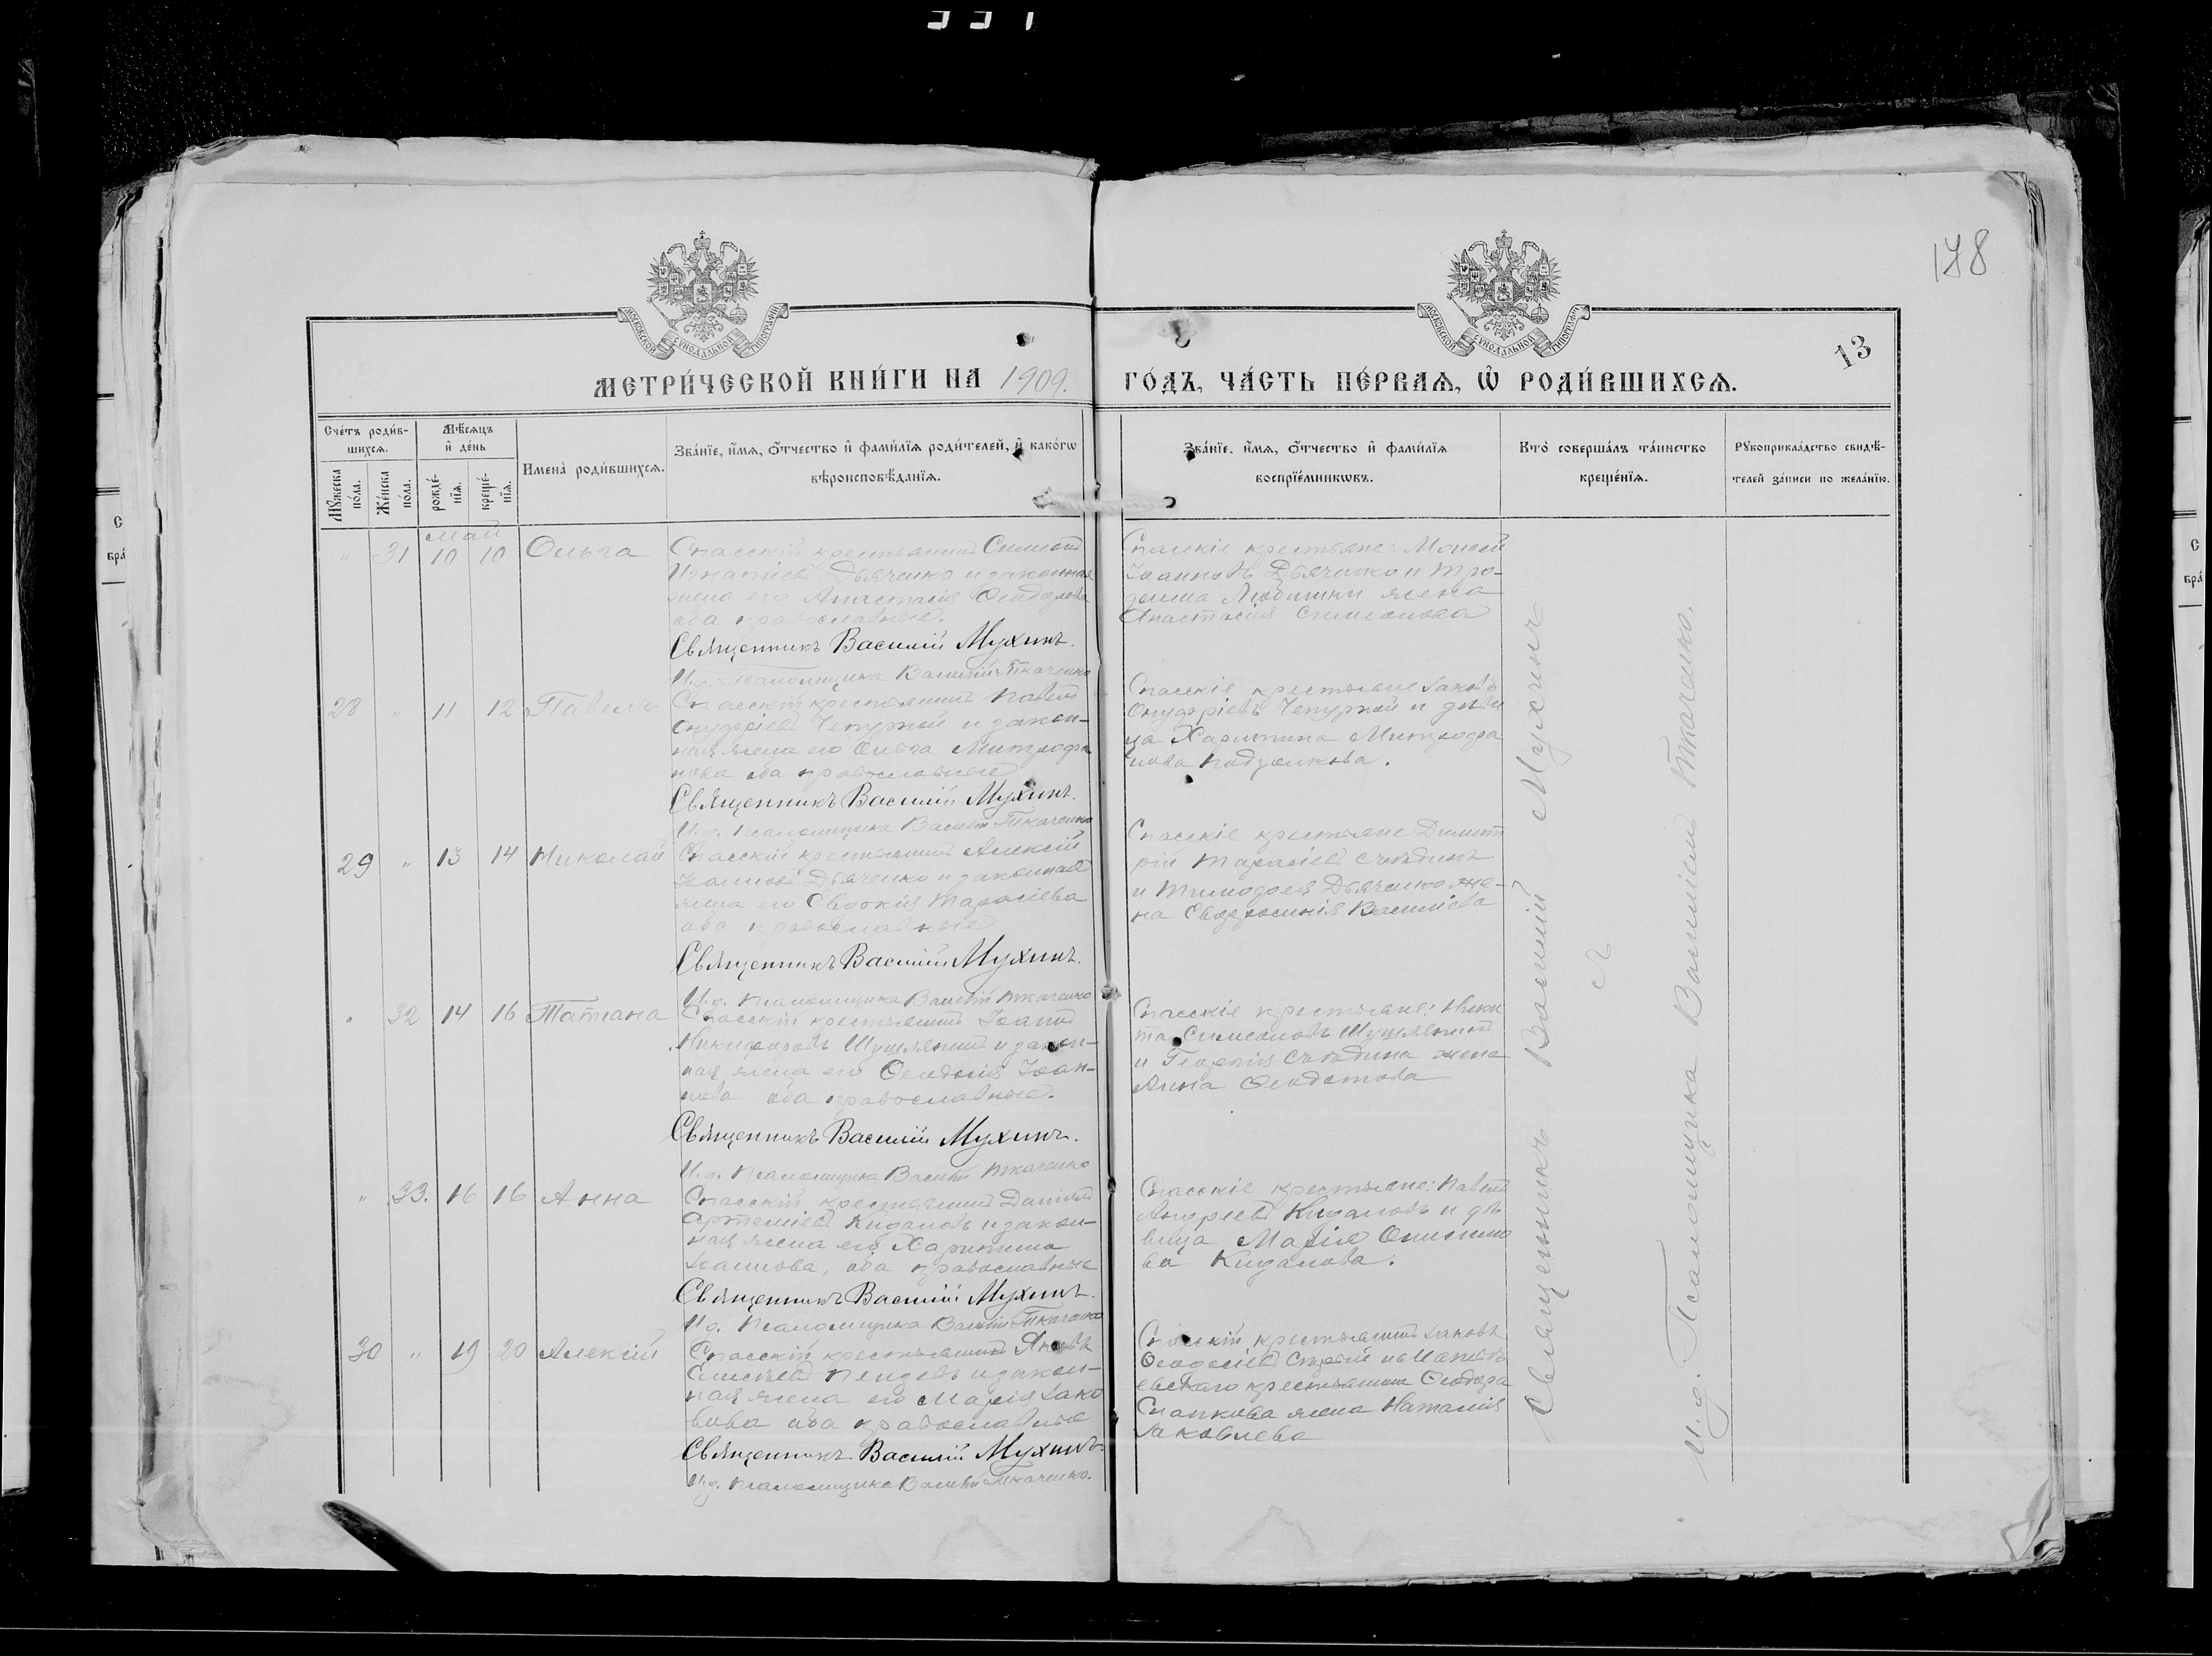 178
13
МОСКОВСКОЙ СУНОДАЛЬНОЙ ТИПОГРАФІИ
МОСКОВСКОЙ СУНОДАЛЬНОЙ ТИПОГРАФІИ
МЕТРИ́ЧЕСКОЙ КНИ́ГИ НА 1909. ГО́ДЪ, ЧА́СТЬ ПЕ́РВАѦ, Ѡ҆ РОДИ́ВШИХСѦ.
Сче́тъ роди́в-
шихсѧ.
Мꙋ́жеска по́ла.
Же́нска по́ла.
Мѣ́сѧцъ и҆ де́нь
рожде́-
нїѧ.
креще́-
нїѧ.
И҆мена̀ роди́вшихсѧ.
Зва́нїе, и҆́мѧ, ѻ҆́тчество и҆ фами́лїѧ роди́телей, и҆ како́гѡ
вѣроисповѣ́данїѧ.
Зва́нїе, и҆́мѧ, ѻ҆́тчество и҆ фами́лїѧ
воспрїе́мникѡвъ.
Кто̀ соверша́лъ та́инство
креще́нїѧ.
Рꙋкоприкла́дство свидѣ́-
телей за́писи по жела́нїю.
май
" 31 10 10 Ольга
Спасскій крестьянинъ Симеонъ
Игнатіевъ Дьяченко и законная
жена его Анастасія Ѳеодорова
оба православные.
Священникъ Василій Мухинъ.
И.д. Псаломщика Василій Ткаченко
Спасскіе крестьяне: Моисей
Іоанновъ Дьяченко и Тро-
жена
Анастасія Симеонова
28 " 11 12 Павелъ
Спасскій крестьянинъ Павелъ
Онуфріевъ Чепурной и закон-
ная жена его Ольга Митрофа
нова оба православные
Священникъ Василій Мухинъ.
И.д. Псаломщика Василій Ткаченко
Спасскіе крестьяне Іаковъ
Онуфріевъ Чепурной и дѣви
ца Харитина Митрофа
нова
29 " 13 14 Николай
Спасскій крестьянинъ Алексій
Іоанновъ Дьяченко и законная
жена его Евдокія Тарасіева
оба православные
Священникъ Василій Мухинъ.
И.д. Псаломщика Василій Ткаченко
Спасскіе крестьяне Димит
рій Тарасіевъ Съѣдинъ
и Тимофея Дьяченко же-
на Евфросинія Василіева
" 32 14 16 Татіана
Спасскій крестьянинъ Іоаннъ
Никифоровъ и закон-
ная жена его Ѳеодосія Іоан-
нова оба православные.
Священникъ Василій Мухинъ.
И.д. Псаломщика Василій Ткаченко
Спасскіе крестьяне: Ники
та Симеоновъ
и Георгія Съѣдина жена
Анна Ѳеодотова
" 33. 16 16 Анна
Спасскій крестьянинъ Даніилъ
Артеміевъ Кидаловъ и закон-
ная жена его Харитина
Іоаннова, оба православные
Священникъ Василій Мухинъ.
И.д. Псаломщика Василій Ткаченко
Спасскіе крестьяне: Павелъ
Андреевъ Кидаловъ и дѣ
вица Марія Онисимо
ва Кидалова.
30 " 19 20 Алексій
Спасскій крестьянинъ Яковъ
Елисѣевъ и закон-
ная жена его Марія Іако
влева оба православные
Священникъ Василій Мухинъ.
И.д. Псаломщика Василій Ткаченко.
Спасскій крестьянинъ Іаковъ
Ѳеодосіевъ
крестьянина Ѳеодора
жена Наталія
Іаковлева
Священникъ Василій Мухинъ
съ
И.д. Псаломщика Василіемъ Ткаченко.